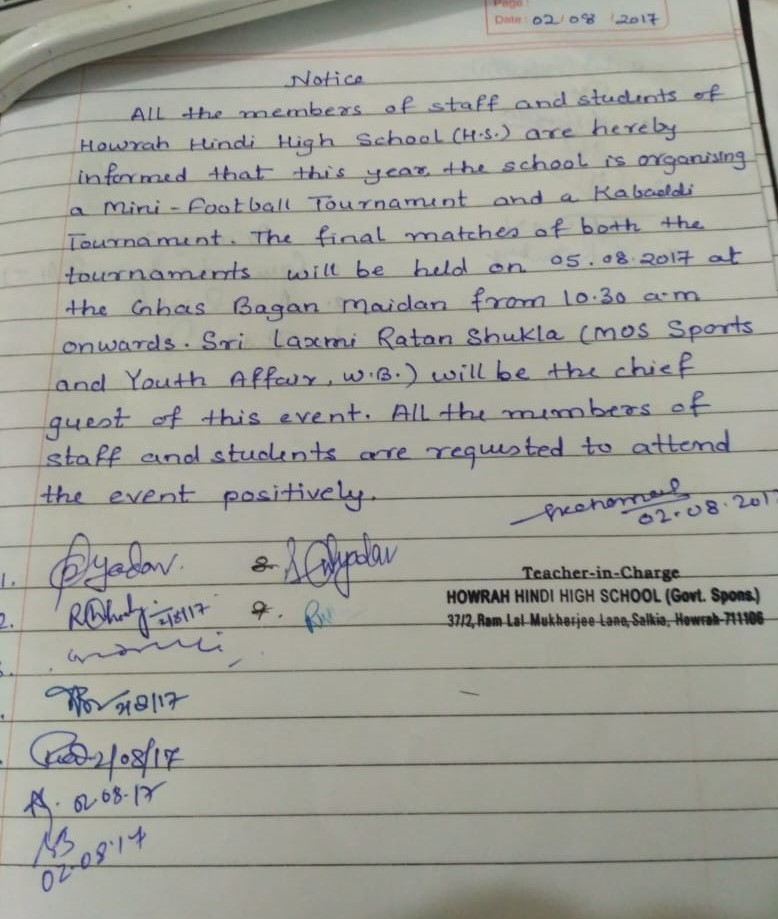 Page:
Date: 02/08/2017
Notice
All the members of staff and students of
Howrah Hindi High School (H.S.) are hereby
informed that this year, the school is organising
a Mini-Football Tournament and a Kabaddi
Tournament. The final matches of both the
tournaments will be held on 05.08.2017 at
the Ghas Bagan Maidan from 10.30 a.m
onwards. Sri Laxmi Ratan Shukla (MOS Sports
and Youth Affair, W.B.) will be the chief
guest of this event. All the members of
staff and students are requested to attend
the event positively.
02.08.2017
1. Yadav. 8. Yadav
Teacher-in-Charge
HOWRAH HINDI HIGH SCHOOL (Govt. Spons.)
37/2, Ram Lal Mukherjee Lane, Salkia, Howrah-711106
2. 2/8/17 9.
2/8/17
2/08/17
02.08.17
02.08.17